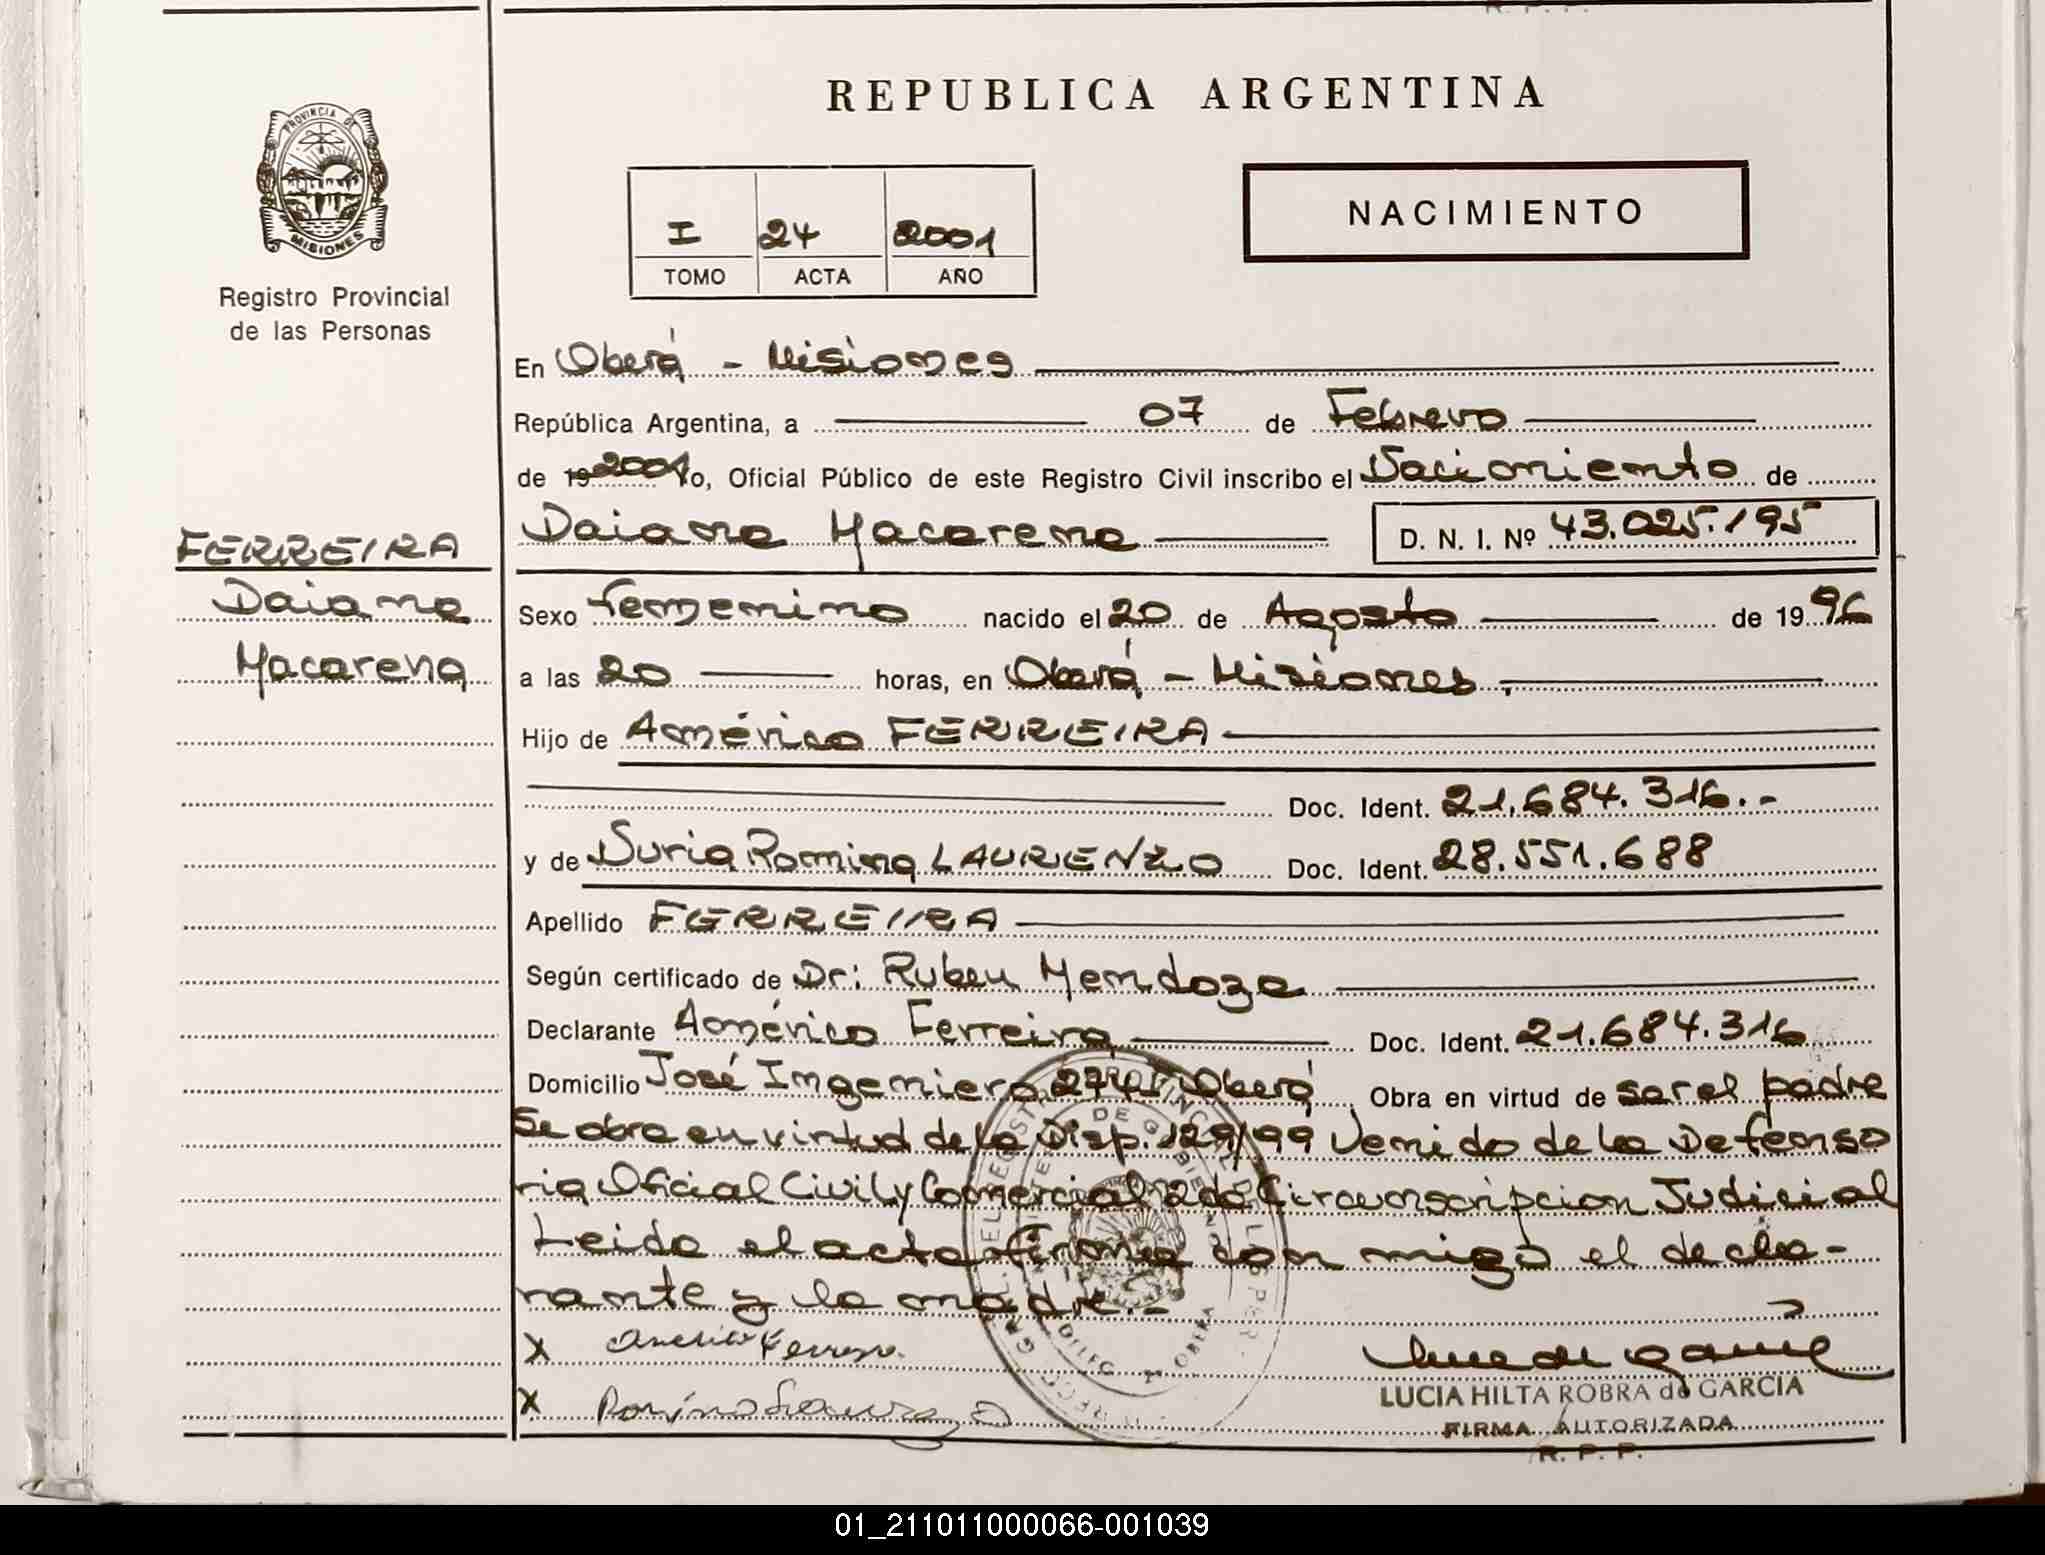 REPUBLICA ARGENTINA
PROVINCIA DE
MISIONES
Registro Provincial
de las Personas
I 24 2001
TOMO ACTA AÑO
NACIMIENTO
En Oberá - Misiones
República Argentina, a 07 de Febrero
de 19 2001 Yo, Oficial Público de este Registro Civil inscribo el Nacimiento de
FERREIRA
Daiana
Macarena
Daiana Macarena D. N. I. Nº 43.025.195
Sexo femenino nacido el 20 de Agosto de 1996
a las 20 horas, en Oberá - Misiones.
Hijo de Américo FERREIRA
Doc. Ident. 21.684.316.-
y de Nuria Romina LAURENZO Doc. Ident. 28.551.688
Apellido FERREIRA
Según certificado de Dr: Ruben Mendoza
Declarante Américo Ferreira Doc. Ident. 21.684.316
Domicilio José Ingeniero Oberá Obra en virtud de ser el padre
Se obra en virtud de la Disp. 129/99 Venido de la Defenso
ria Oficial Civil y Comercial 2da Circunscripcion Judicial
Leida el acta firma con migo el decla-
rante y la madre.-
X
X
LUCIA HILTA ROBRA de GARCIA
FIRMA AUTORIZADA
R. P. P.
01_211011000066-001039